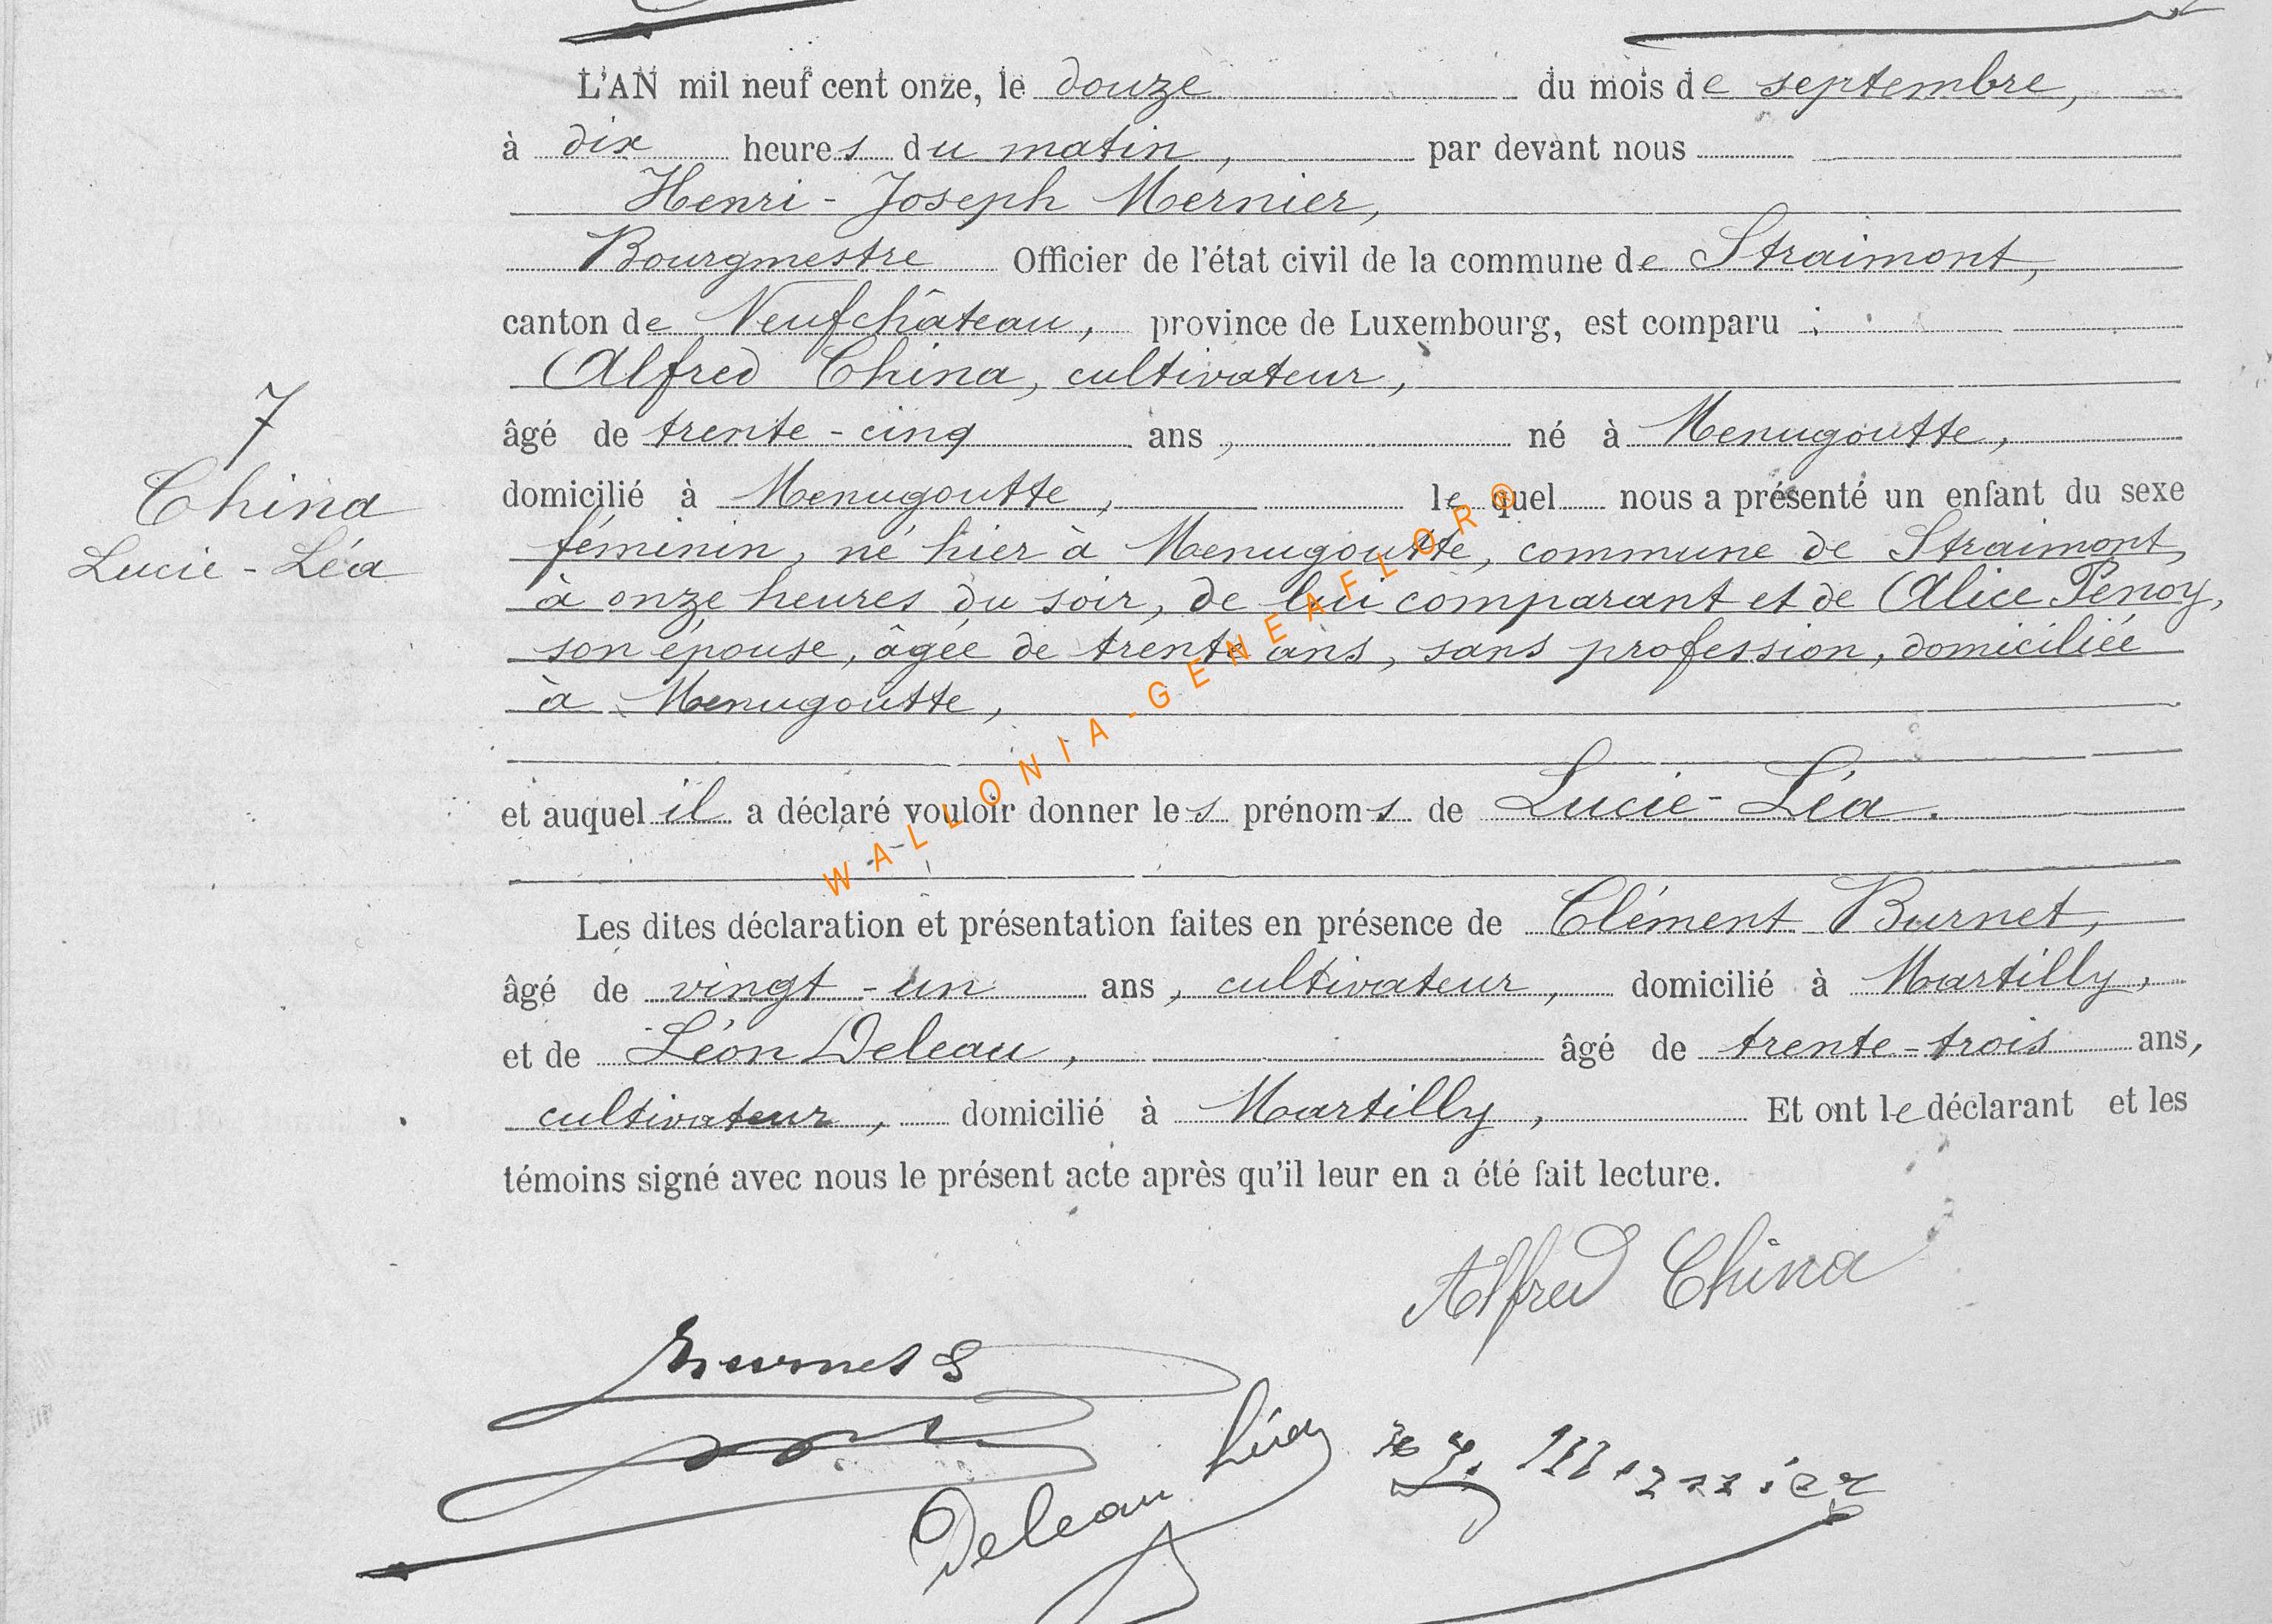 L'AN mil neuf cent onze, le douze du mois de septembre,
à dix heures du matin, par devant nous
Henri-Joseph Mernier,
Bourgmestre Officier de l'état civil de la commune de Straimont,
canton de Neufchâteau, province de Luxembourg, est comparu :
Alfred China, cultivateur,
âgé de trente-cinq ans, né à Menugoutte,
domicilié à Menugoutte, lequel nous a présenté un enfant du sexe
féminin, né hier à Menugoutte, commune de Straimont,
à onze heures du soir, de lui comparant et de Alice Penoy,
son épouse, âgée de trente ans, sans profession, domiciliée
à Menugoutte,
et auquel il a déclaré vouloir donner les prénoms de Lucie-Léa.
Les dites déclaration et présentation faites en présence de Clément Burnet,
âgé de vingt-un ans, cultivateur, domicilié à Martilly,
et de Léon Deleau, âgé de trente-trois ans,
cultivateur, domicilié à Martilly, Et ont le déclarant et les
témoins signé avec nous le présent acte après qu'il leur en a été fait lecture.
7
China
Lucie-Léa
Alfred China
Burnet
Deleau Léon
H J. Mernier
WALLONIA-GENEAFLOR®